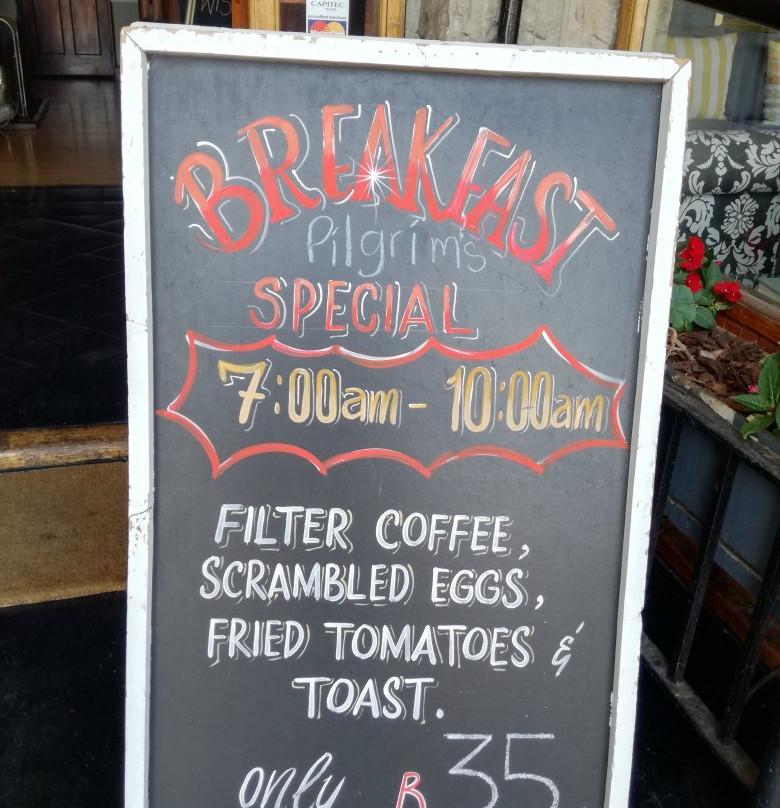 CAPITEC
BANK
BREAKFAST
Pilgrim's
SPECIAL
7:00am - 10:00am
FILTER COFFEE,
SCRAMBLED EGGS,
FRIED TOMATOES &
TOAST.
only R 35